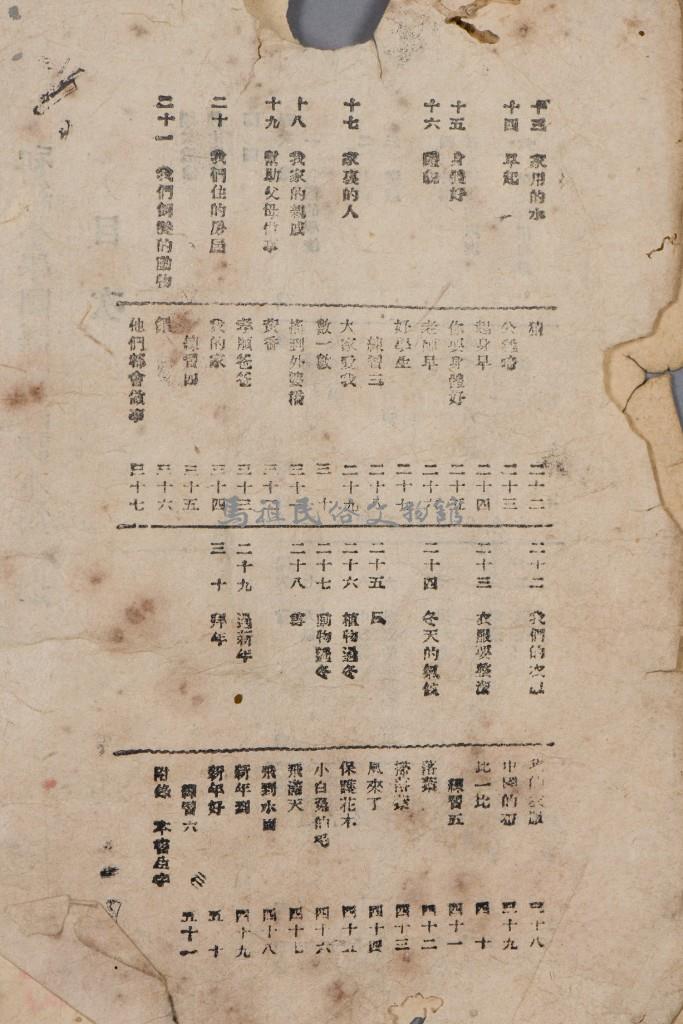 十三 家用的水
十四 早起
十五 身體好
十六
十七 家裏的人
十八 我家的親戚
十九 幫助父母做事
二十 我們住的房屋
二十一 我們飼養的動物
貓
公雞啼
起身早
你要身體好
老師早
好學生
練習三
大家愛我
數一數
搖到外婆橋
孝順爸爸
我的家
練習四
他們都會做事
二十二
二十三
二十四
二十五
二十六
二十七
二十八
二十九
三十
三十一
三十三
三十四
三十五
三十六
三十七
馬祖民俗文物館
二十二 我們的衣服
二十三 衣服要整潔
二十四 冬天的氣候
二十五 風
二十六 植物過冬
二十七 動物過冬
二十八 雪
二十九 過新年
三十 拜年
我的衣服
中國的布
比一比
練習五
落葉
掃落葉
風來了
保護花木
小白兔的毛
飛滿天
飛到水面
新年到
新年好
練習六
附錄 本書生字
三十八
三十九
四十
四十一
四十二
四十三
四十四
四十五
四十六
四十七
四十八
四十九
五十
五十一